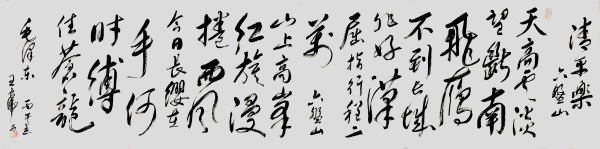 清平樂
六盤山
天高雲淡
望斷南
飛鴈
不到長城
非好漢
屈指行程二
萬六盤山
山上高峯
紅旗漫
捲西風
今日長纓在
手何
時縛
住蒼龍
毛澤東